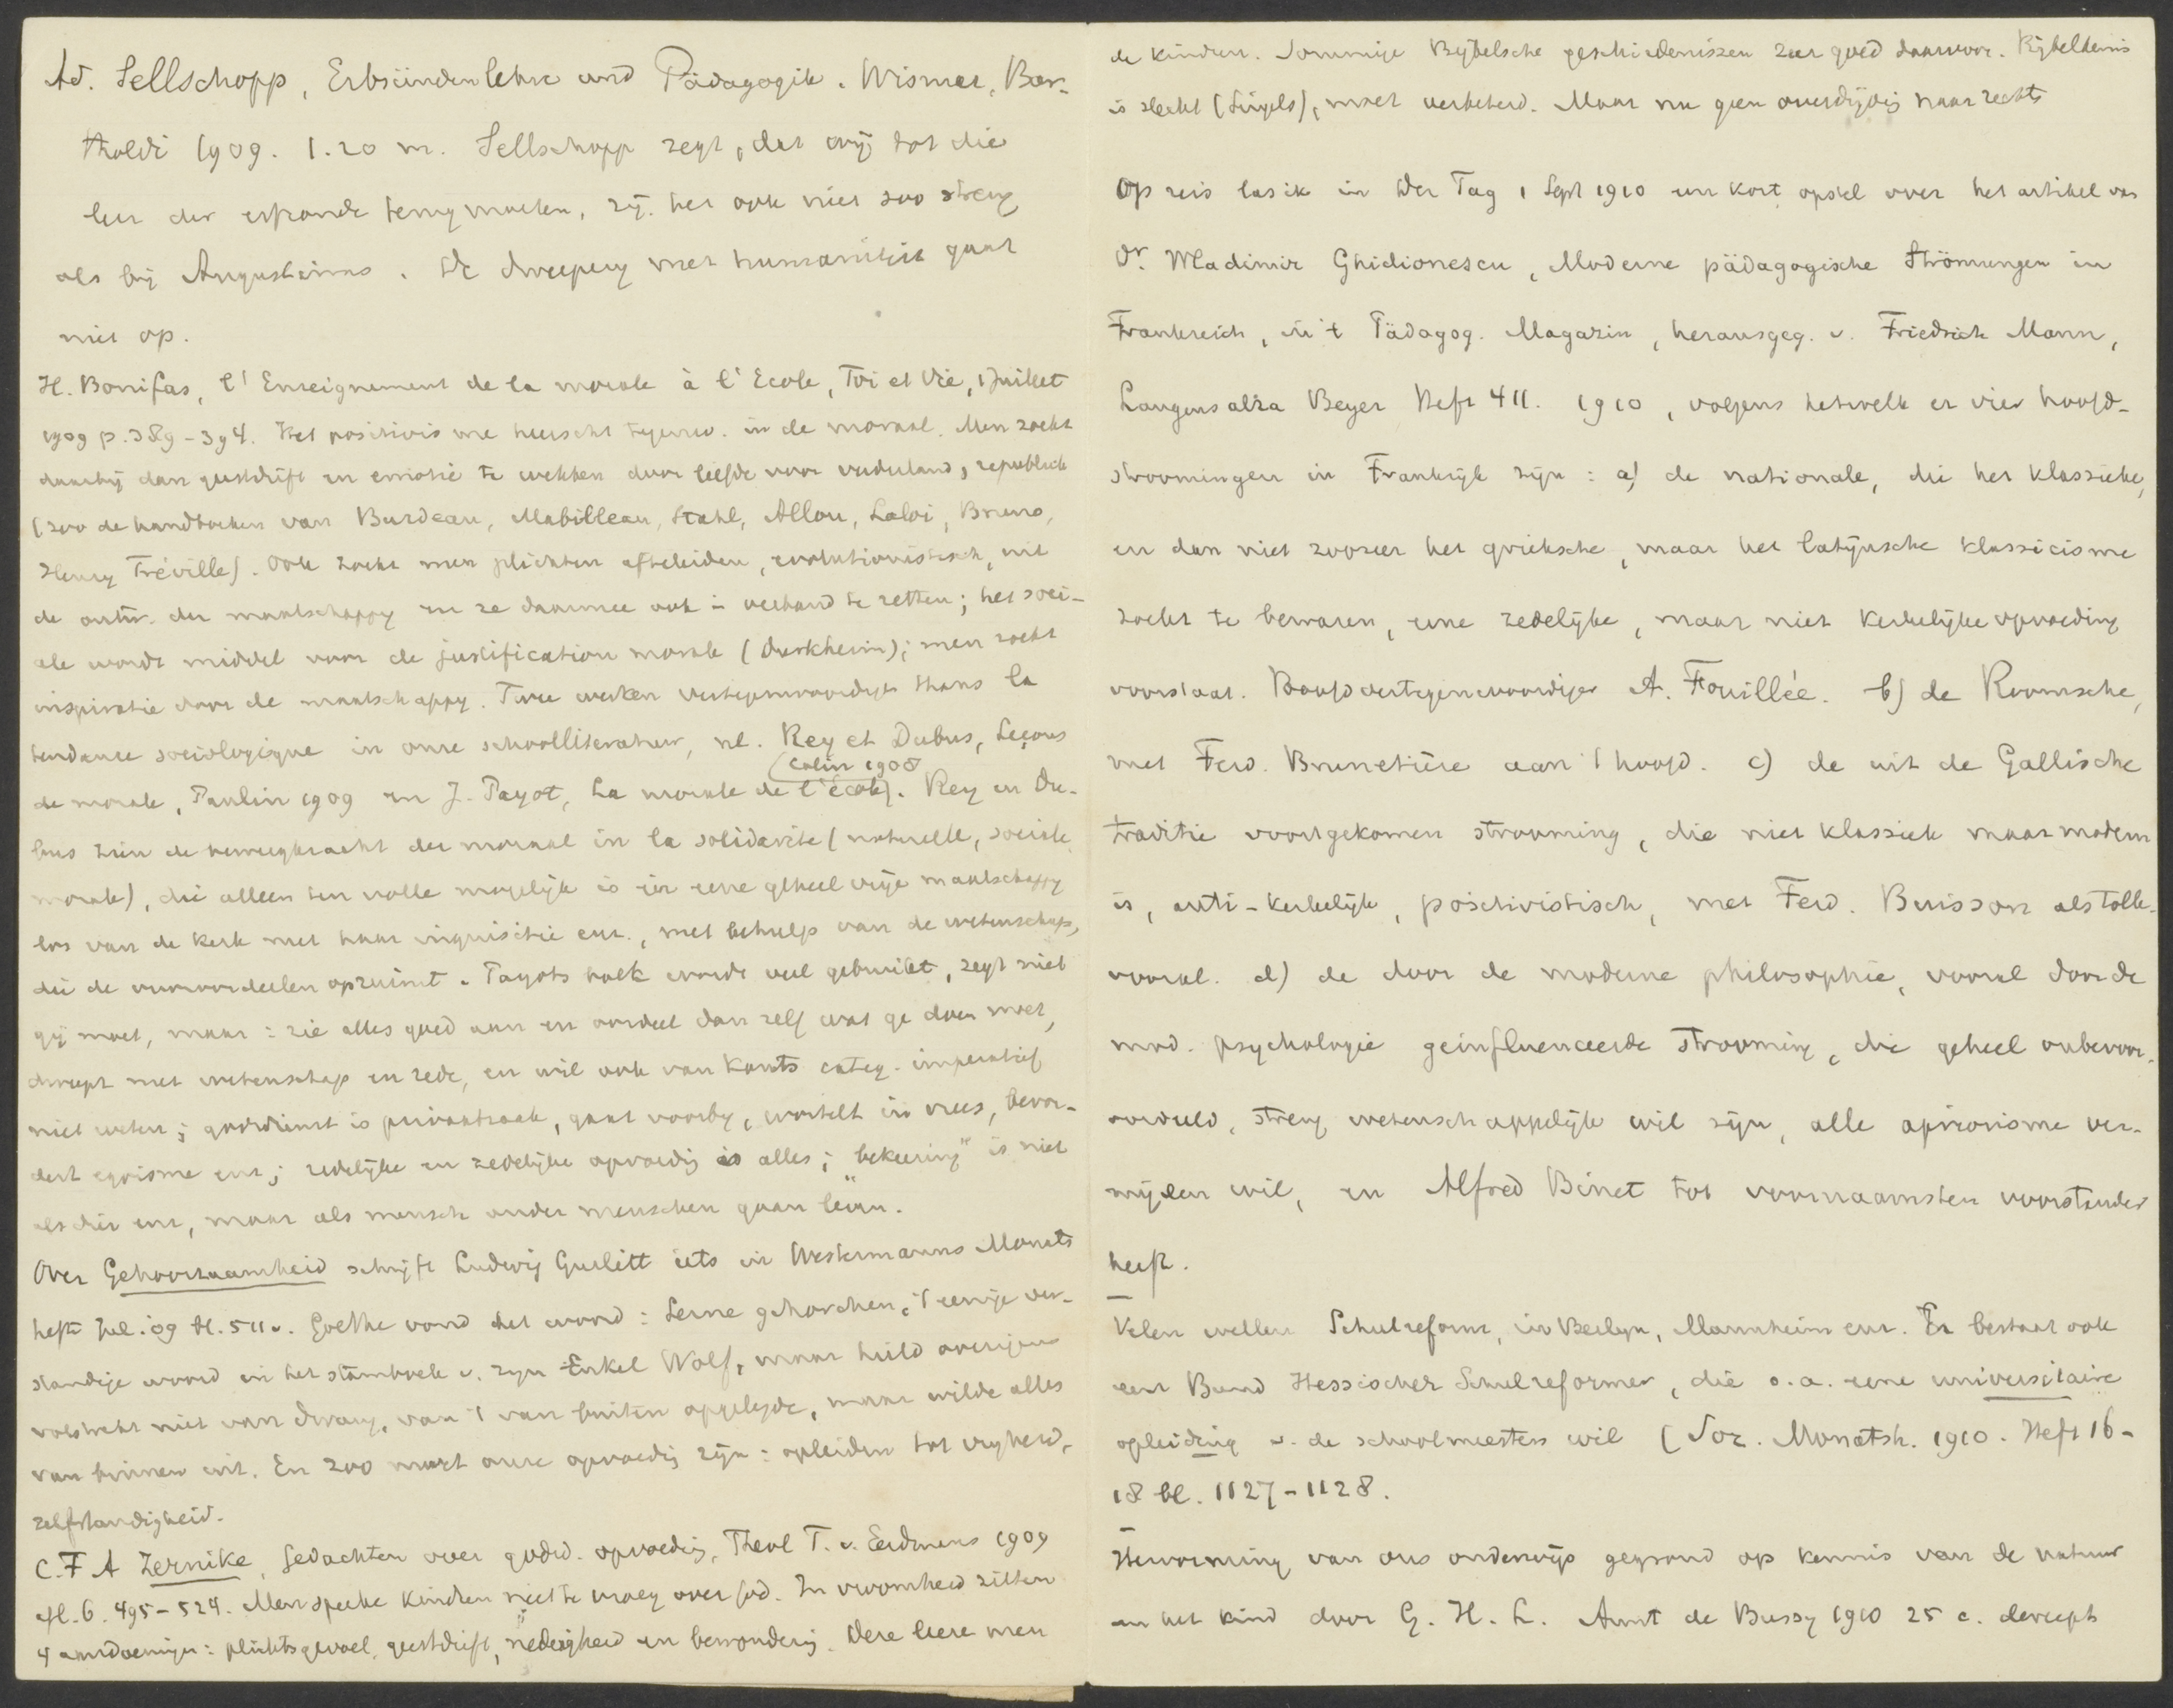 Ad. Sellschopp, Erbsündenlehre und Pädagogik. Wismar, Bar-
tholdi 1909. 1.20 m. Sellschopp zegt, dat wij tot die
leer der erfzonde terug moeten, zij het ook niet zoo streng
als bij Augustinus. De dweepery met humaniteit gaat
niet op.
H. Bonifas, l'Enseignement de la morale à l'Ecole, Foi et Vie, 1 Juillet
1909 p. 389-394. Het positivisme heerscht tegenw. in de moraal. Men zoekt
daarbij dan geestdrift en emotie te wekken door liefde voor vaderland, republiek
(zoo de handboeken van Burdeau, Mabilleau, Stahl, Allou, Laloi, Bruno,
Henry Fréville). Ook zoekt men plichten afteleiden, evolutionistisch, uit
de ontw. der maatschappy en ze daarmee ook in verband te zetten; het soci-
ale wordt middel voor de justification morale (Durkheim); men zoekt
inspiratie door de maatschappy. Twee werken vertegenwoordigen thans la
tendance sociologique in onze schoolliteratuur, nl. Rey et Dubus, Leçons
de morale, Paulin 1909 en J. Payot, La morale de l'école (Colin 1908). Rey en Du-
bus zien de beweegkracht der moraal in la solidarité (naturelle, sociale,
morale), die alleen ten volle mogelijk is in eene geheel vrije maatschappy
los van de kerk met haar inquisitie enz., met behulp van de wetenschap,
die de vooroordeelen opruimt. Payots boek wordt veel gebruikt, zegt niet
gij moet, maar: zie alles goed aan en oordeel dan zelf wat ge doen moet,
dweept met wetenschap en rede, en wil ook van Kants categ. imperatief
niet weten; godsdienst is privaatzaak, gaat voorby, wortelt in vrees, bevor-
dert egoisme enz; redelijke en zedelijke opvoedig is alles; "bekeering" is niet
als dier enz, maar als mensch onder menschen gaan leven.
Over Gehoorzaamheid schrijft Ludwig Gurlitt iets in Westermanns Monats
hefte Jul. '09 bl. 511v. Goethe vond het woord: Lerne gehorchen, 't eenige ver-
standige woord in het stamboek v. zijn Enkel Wolf, maar hield overigens
volstrekt niet van dwang, van 't van buiten opgelegde, maar wilde alles
van binnen uit. En zoo moet onze opvoedig zijn: opleiden tot vrijheid,
zelfstandigheid.
C. F A Zernike, Gedachten over godsd. opvoedig, Theol T. v. Eerdmans 1909
Afl. 6. 495-524. Men spreke kinderen niet te vroeg over God. In vroomheid zitten
4 aandoeningen: plichtsgevoel, geestdrift, nederigheid en bewonderig. Deze leere men
de kinderen. Sommige Bijbelsche geschiedenissen zeer goed daarvoor. Bijbelkennis
is slecht (Engels), moet verbeterd. Maar nu geen overdrijvig naar rechts
Op reis las ik in Der Tag 1 Sept 1910 een kort opstel over het artikel van
Dr. Wladimir Ghidionescu, Moderne pädagogische Strömungen in
Frankreich, in 't Pädagog. Magazin, herausgeg. v. Friedrich Mann,
Langensalza Beyer Heft 411. 1910, volgens hetwelk er vier hoofd-
stroomingen in Frankrijk zijn: a) de nationale, die het klassieke,
en dan niet zoozeer het grieksche, maar het latijnsche klassicisme
zoekt te bewaren, eene zedelijke, maar niet kerkelijke opvoeding
voorstaat. Hoofdvertegenwoordiger A. Fouillée. b) de Roomsche,
met Ferd. Brunetière aan 't hoofd. c) de uit de Gallische
traditie voortgekomen strooming, die niet klassiek maar modern
is, anti-kerkelijk, positivistisch, met Ferd. Buisson als tolk.
vooral. d) de door de moderne philosophie, vooral door de
mod. psychologie geinfluenceerde strooming, die geheel onbevoor-
oordeeld, streng wetenschappelijk wil zijn, alle apriorisme ver-
mijden wil, en Alfred Binet tot voornaamsten voorstander
heeft.
Velen willen Schulreform, in Berlijn, Mannheim enz. Er bestaat ook
een Bund Hessischer Schulreformer, die o.a. eene universitaire
opleiding v. de schoolmeesters wil (Soz. Monatsh. 1910. Heft 16-
18 bl. 1127-1128.
Hervorming van ons onderwijs gegrond op kennis van de natuur
en het kind door G. H. L. Amst de Bussy 1910 25 c. dweept